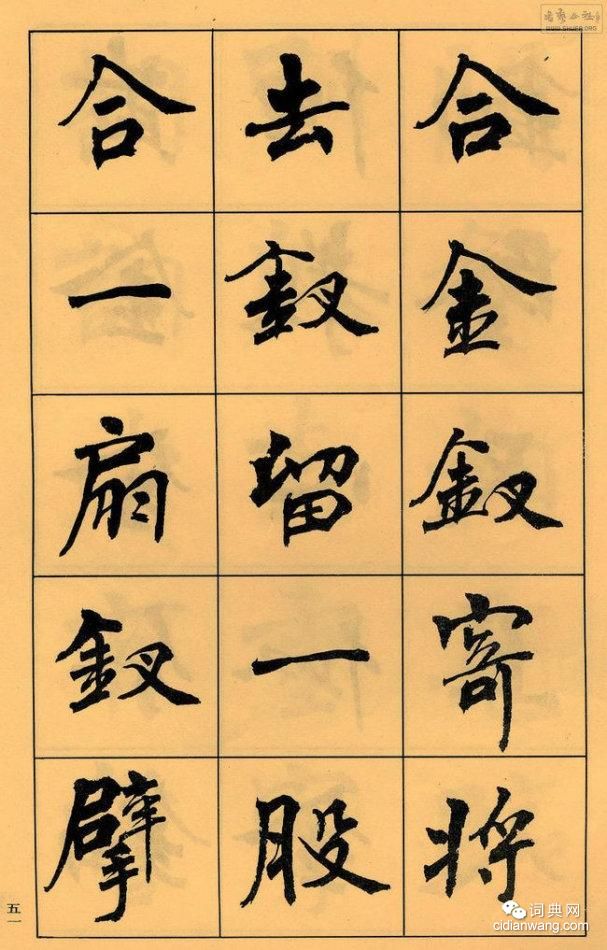 合金釵寄将
去釵留一股
合一扇釵擘
五一
词典网
cidianwang.com